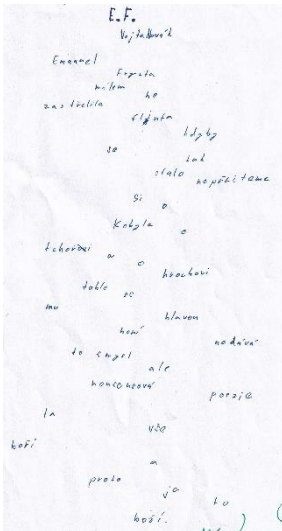 E.F.
Emanuel
Frynta
málem ho
zastřelila
flinta
kdyby
se tak
stalo nepřčitame
si o
Kobyle o
tchořovi
a o hrochovi
tohle se
mu hlavou
honí
nedává
to smysl ale
nonsensová
poezie
ta
vše
boří
a
proto
je to
boží.